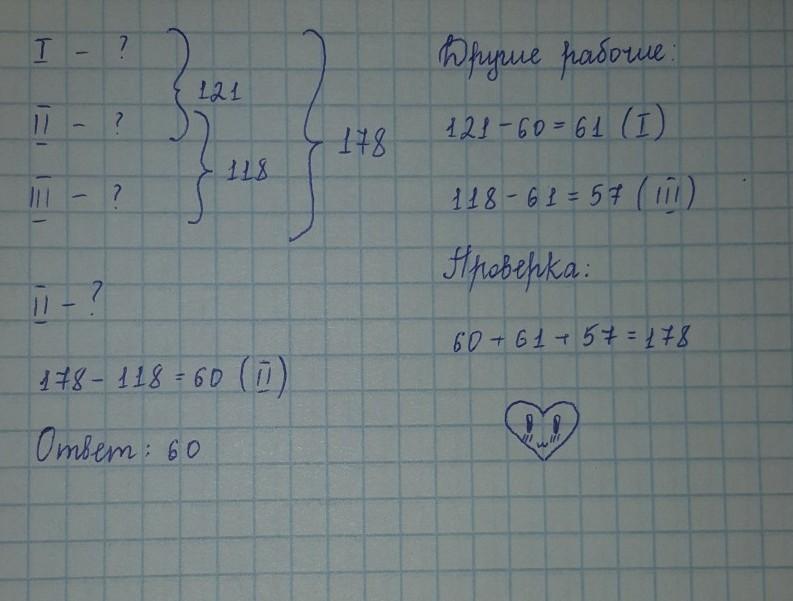 I - ?
II - ?
III - ?
121
118
178
II - ?
178 - 118 = 60 (II)
Ответ: 60
Другие рабочие:
121 - 60 = 61 (I)
118 - 61 = 57 (III)
Проверка:
60 + 61 + 57 = 178